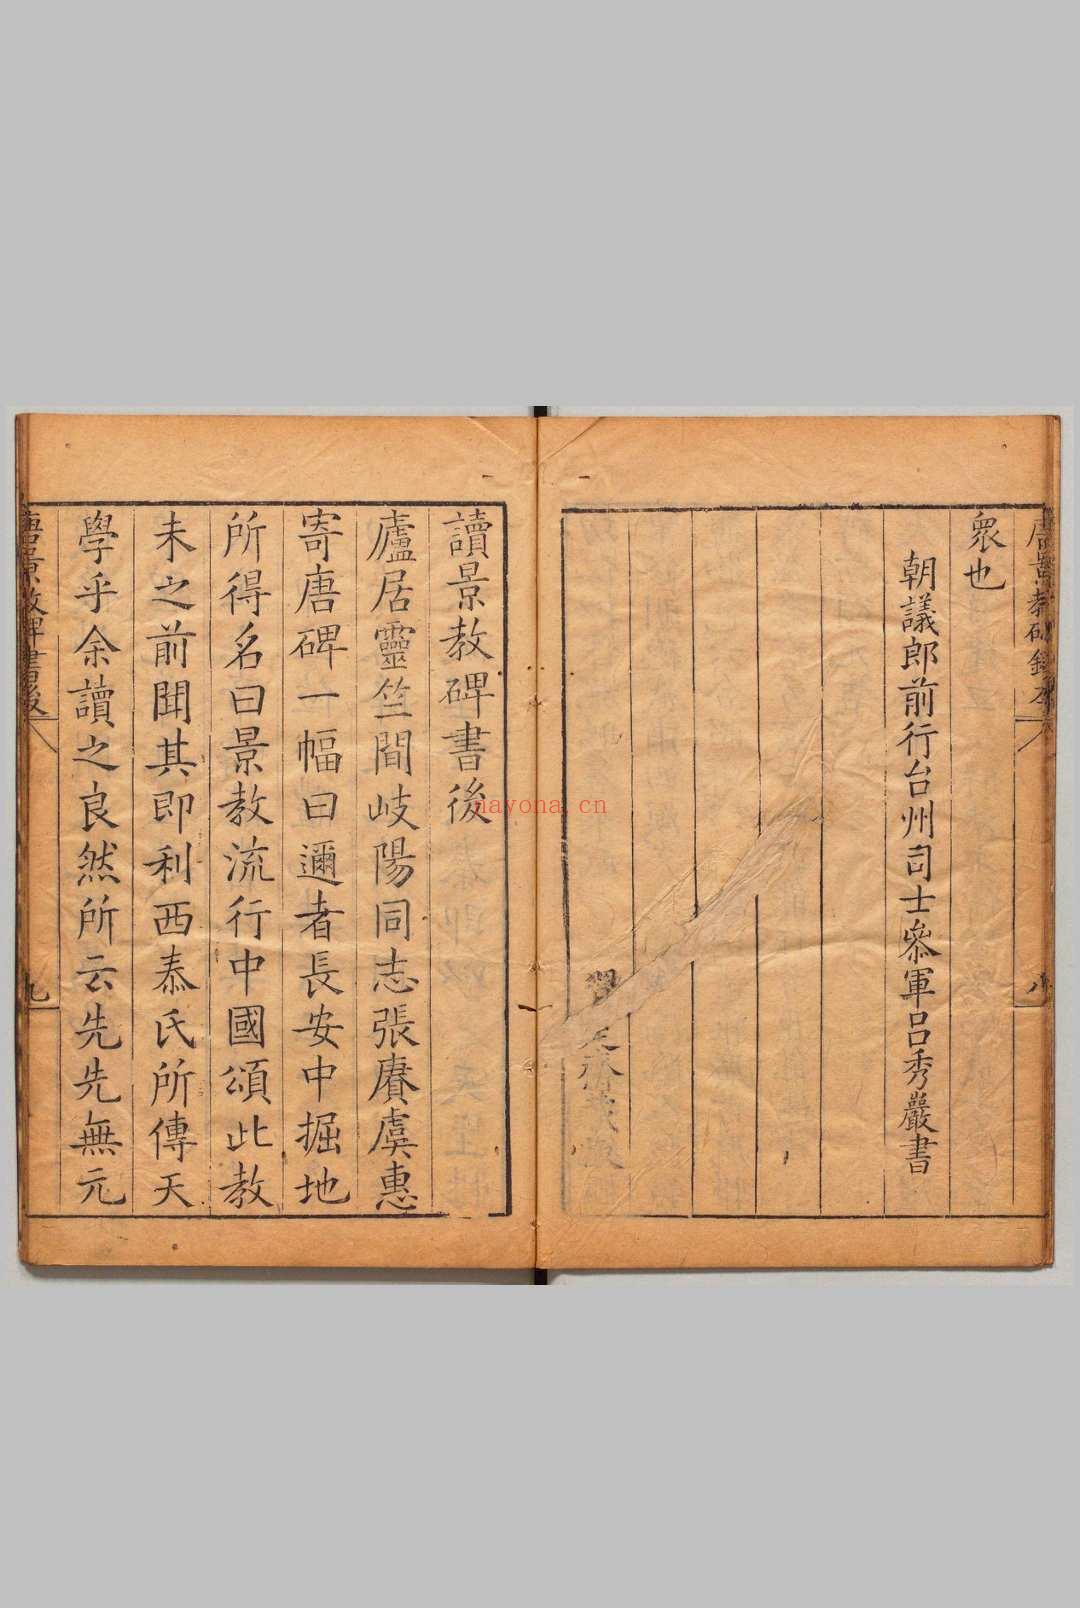 眾也
朝議郎前行台州司士參軍呂秀巖書
八
讀景教碑書後
廬居靈竺間岐陽同志張賡虞惠
寄唐碑一幅曰邇者長安中掘地
所得名曰景教流行中國頌此教
未之前聞其即利西泰氏所傳天
學乎余讀之良然所云先先無元
唐景教碑書後
九
nayona.cn